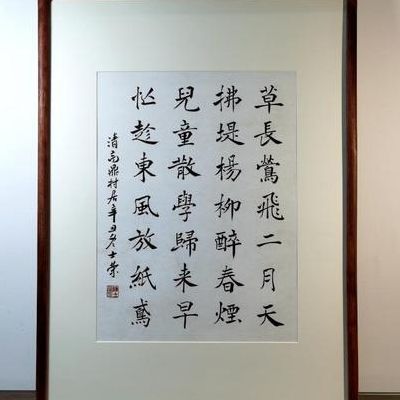 草長鶯飛二月天
拂堤楊柳醉春煙
兒童散學歸来早
忙趁東風放紙鳶
清高鼎村居辛丑冬士榮